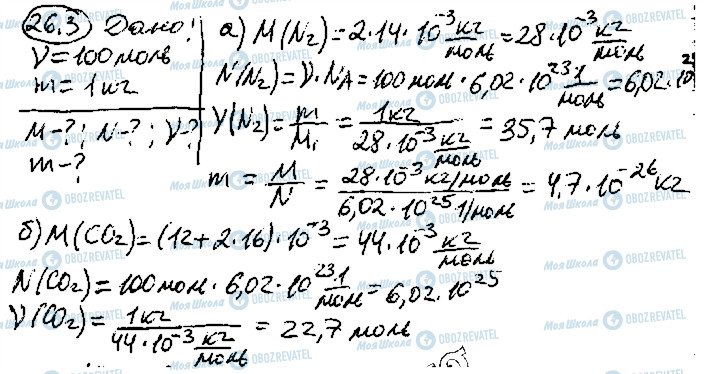 26.3 Дано:
ν=100 моль
m=1кг
M-?; N-?; ν-?
m-?
а) M(N₂)=2·14·10⁻³ кг/моль=28·10⁻³ кг/моль
N(N₂)=ν·NA=100 моль·6,02·10²³ 1/моль=6,02·10²⁵
ν(N₂)=m/M₁=1кг/28·10⁻³ кг/моль=35,7 моль
m=M/N=28·10⁻³ кг/моль/6,02·10²⁵ 1/моль=4,7·10⁻²⁶ кг
б) M(CO₂)=(12+2·16)·10⁻³=44·10⁻³ кг/моль
N(CO₂)=100 моль·6,02·10²³ 1/моль=6,02·10²⁵
ν(CO₂)=1кг/44·10⁻³ кг/моль=22,7 моль
Моя Школа OBOZREVATEL